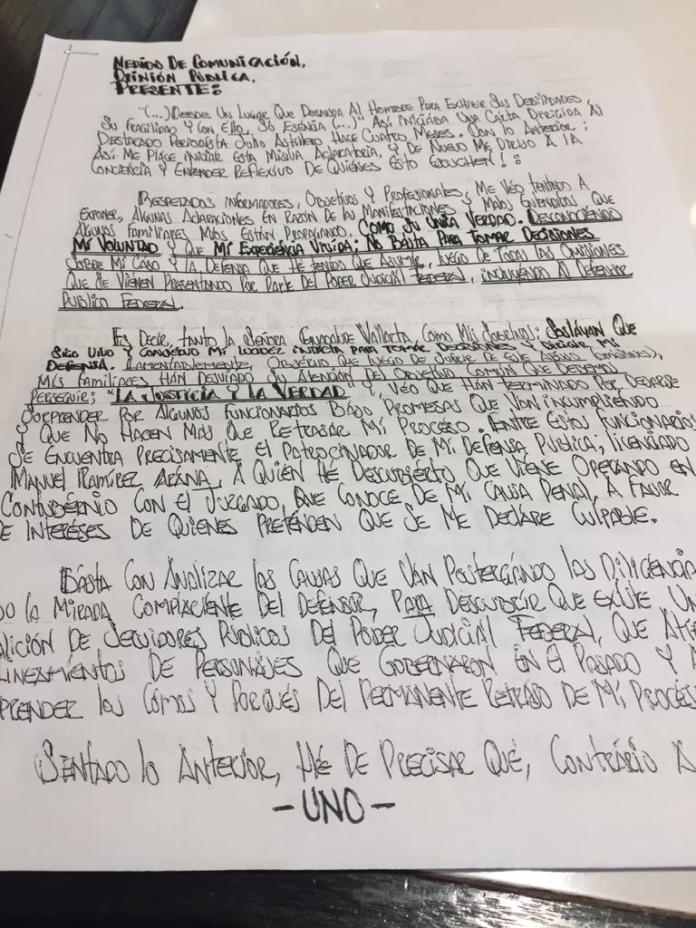 MEDIOS DE COMUNICACIÓN,
OPINIÓN PÚBLICA,
PRESENTE:
"(...) DESDE UN LUGAR QUE DESNUDA AL HOMBRE PARA EXHIBIR SUS DEBILIDADES,
SU FRAGILIDAD Y CON ELLO, SU ESENCIA (...)" ASÍ INICIABA UNA CARTA DIRIGIDA AL
DESTACADO PERIODISTA JULIO ASTILLERO HACE CUATRO MESES. CON LO ANTERIOR;
ASÍ ME PLACE INICIAR ESTA MISIVA ACLARATORIA, Y DE NUEVO ME DIRIJO A LA
CONCIENCIA Y ENTENDER REFLEXIVO DE QUIÉNES ESTO ESCUCHEN!:
RESPETADOS INFORMADORES, OBJETIVOS Y PROFESIONALES, ME VEO TENTADO A
EXPONER, ALGUNAS ACLARACIONES EN RAZÓN DE LAS MANIFESTACIONES Y MALOS ENTENDIDOS, QUE
ALGUNOS FAMILIARES MÍOS ESTÁN PROPAGANDO, COMO SU ÚNICA VERDAD. DESCONOCIENDO
MI VOLUNTAD Y QUE MI EXPERIENCIA VIVIDA; NO BASTA PARA TOMAR DECISIONES
SOBRE MI CASO Y LA DEFENSA QUE HE TENIDO QUE ASUMIR, LUEGO DE TODAS LAS OMISIONES
QUE SE VIENEN PRESENTANDO POR PARTE DEL PODER JUDICIAL FEDERAL, INCLUYENDO AL DEFENSOR
PÚBLICO FEDERAL.
ES DECIR, TANTO LA SEÑORA GUADALUPE VALLARTA COMO MIS SOBRINOS; SOSLAYAN QUE
SIGO VIVO Y CONSERVO MI LUCIDEZ INTACTA PARA TOMAR DECISIONES MI
DEFENSA. LAMENTABLEMENTE, OBSERVO QUE LUEGO DE SUFRIR DE ESTE ABUSO
MIS FAMILIARES HAN DESVIADO SU ATENCIÓN DEL OBJETIVO COMÚN QUE DEBEMOS
PERSEGUIR; "LA JUSTICIA Y LA VERDAD" Y, VEO QUE HAN TERMINADO POR DEJARSE
SORPRENDER POR ALGUNOS FUNCIONARIOS BAJO, PROMESAS QUE VAN INCUMPLIENDO
Y QUE NO HACEN MÁS QUE RETRASAR MI PROCESO. ENTRE ESTOS FUNCIONARIOS
SE ENCUENTRA PRECISAMENTE EL PATROCINADOR DE MI DEFENSA PÚBLICA; LICENCIADO
MANUEL RAMÍREZ ARANA, A QUIÉN HE DESCUBIERTO, QUE VIENE OPERANDO EN
CONTUBERNIO CON EL JUZGADO, QUE CONOCE DE MI CAUSA PENAL, A FAVOR
DE INTERESES DE QUIENES PRETENDEN QUE SE ME DECLARE CULPABLE.
BASTA CON ANALIZAR LAS CAUSAS QUE VAN POSTERGANDO LAS DILIGENCIA
DO LA MIRADA COMPLACIENTE DEL DEFENSOR, PARA DESCUBRIR QUE EXISTE UN
ALICIÓN DE SERVIDORES PÚBLICOS DEL PODER JUDICIAL FEDERAL, QUE ATI
LINEAMIENTOS DE PERSONAJES QUE GOBERNARON EN EL PASADO Y
PRENDER LOS CÓMOS Y PORQUÉS DEL PERMANENTE RETRASO DE MI PROCES
SENTADO LO ANTERIOR, HE DE PRECISAR QUÉ, CONTRÁRIO A
-UNO-